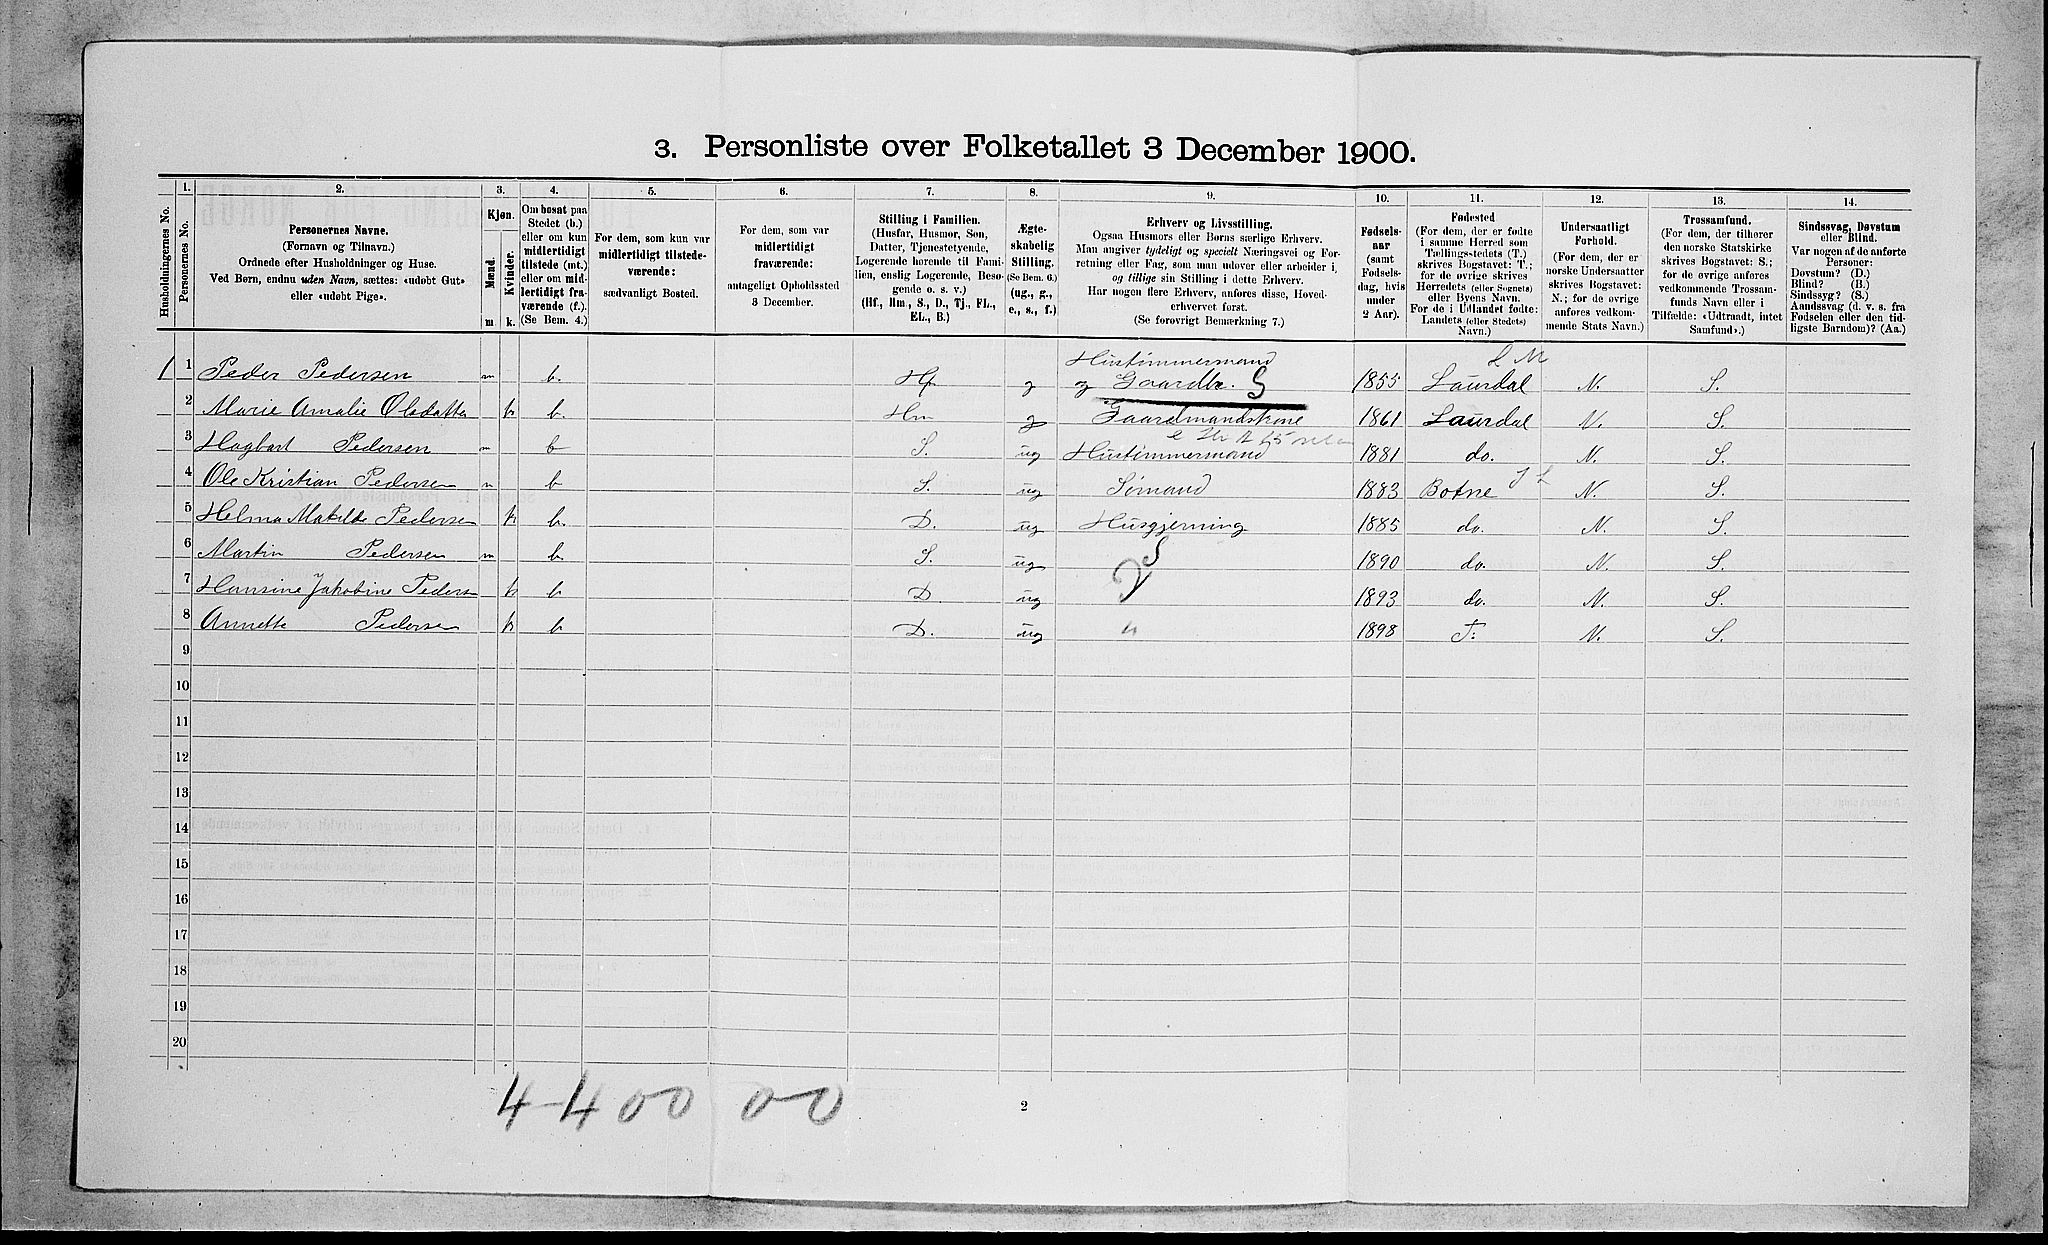 3. Personliste over Folketallet 3 December 1900.
Husholdningernes No.
1.
Personernes No.
2.
Personernes Navne.
(Fornavn og Tilnavn.)
Ordnede efter Husholdninger og Huse.
Ved Børn, endnu uden Navn, sættes: «udøbt Gut»
eller «udøbt Pige».
3.
Kjøn.
Mænd.
Kvinder.
m.
k.
4.
Om bosat paa
Stedet (b.)
eller om kun
midlertidigt
tilstede (mt.)
eller om mid-
lertidigt fra-
værende (f.).
(Se Bem. 4.)
5.
For dem, som kun var
midlertidigt tilstede-
værende:
sædvanligt Bosted.
6.
For dem, som var
midlertidigt
fraværende:
antageligt Opholdssted
3 December.
7.
Stilling i Familien.
(Husfar, Husmor, Søn,
Datter, Tjenestetyende,
Logerende hørende til Fami-
lien, enslig Logerende, Besø-
gende o. s. v.)
(Hf., Hm., S., D., Tj., FL.,
EL., B.)
8.
Ægte-
skabelig
Stilling.
(Se Bem. 6.)
(ug., g.,
e., s., f.)
9.
Erhverv og Livsstilling.
Ogsaa Husmors eller Børns særlige Erhverv.
Man angiver tydeligt og specielt Næringsvei og For-
retning eller Fag, som man udøver eller arbeider i,
og tillige sin Stilling i dette Erhverv.
Har nogen flere Erhverv, anføres disse, Hoved-
erhvervet først.
(Se forøvrigt Bemærkning 7.)
10.
Fødsels-
aar
(samt
Fødsels-
dag, hvis
under
2 Aar).
11.
Fødested
(For dem, der er fødte
i samme Herred som
Tællingsstedets (T.)
skrives Bogstavet: T.;
for de øvrige skrives
Herredets (eller Sognets)
eller Byens Navn.
For de i Udlandet fødte:
Landets (eller Stedets)
Navn.)
12.
Undersaatligt
Forhold.
(For dem, der er
norske Undersaatter
skrives Bogstavet:
N.; for de øvrige
anføres vedkom-
mende Stats Navn.)
13.
Trossamfund.
(For dem, der tilhører
den norske Statskirke
skrives Bogstavet: S.;
for de øvrige anføres
vedkommende Trossam-
funds Navn eller i
Tilfælde: «Udtraadt, intet
Samfund».)
14.
Sindssvag, Døvstum
eller Blind.
Var nogen af de anførte
Personer:
Døvstum? (D.)
Blind? (B.)
Sindssyg? (S.)
Aandssvag (d. v. s. fra
Fødselen eller den tid-
ligste Barndom)? (Aa.)
Hustømmermand L M
1 1 Peder Pedersen m b. Hf g og Gaardbr. S 1855 Laurdal N. S.
2 Marie Amalie Olsdatter k b. Hm g Gaardmandskone 1861 Laurdal N. S.
3 Hagbart Pedersen m b S. ug Hustømmermand 1881 do. N. S.
4 Ole Kristian Pedersen m b S. ug Sømand 1883 Botne N. S.
5 Helma Matilde Pedersen k b. D. ug Husgjerning 1885 do. N. S.
6 Martin Pedersen m b. S. ug 1890 do. N. S.
7 Hansine Jakobine Peders k b D ug 1893 do. N. S.
8 Annette Pedersen k b D. ug " 1898 T. N. S.
9
10
11
12
13
14
15
16
17
18
19
20
4-400 00
2